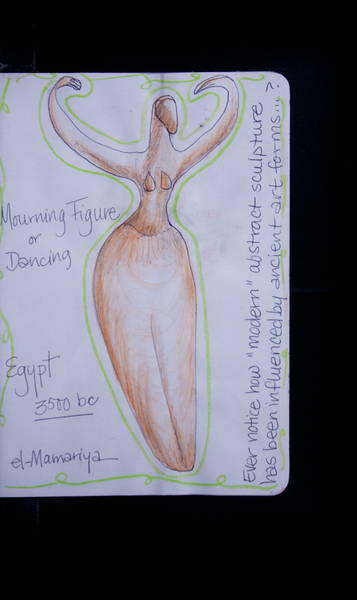 Mourning Figure
or
Dancing
Egypt
3500 bc
el-Mamariya
Ever notice how "modern" abstract sculpture
has been influenced by ancient art forms...?